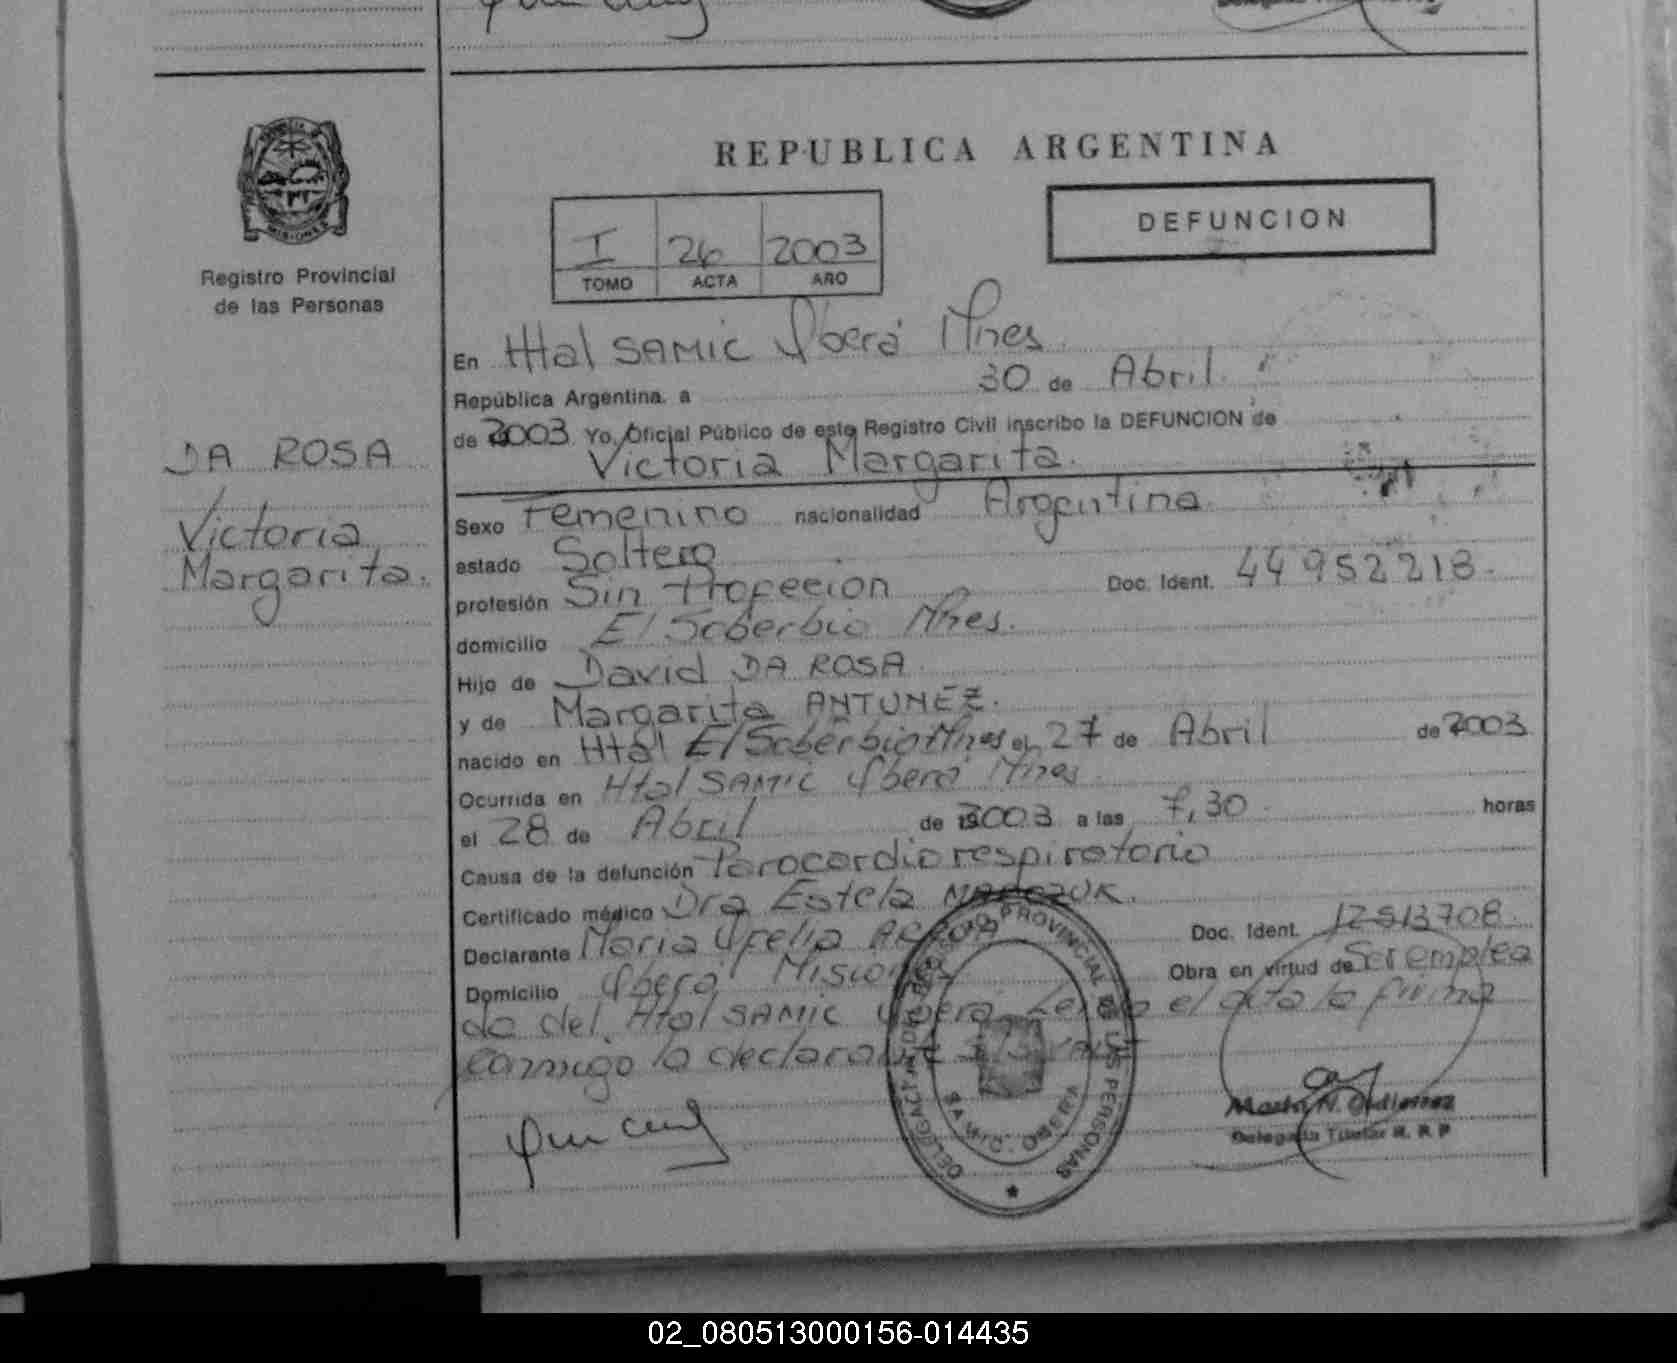 REPUBLICA ARGENTINA
DEFUNCION
I 26 2003
TOMO ACTA AÑO
MISIONES
Registro Provincial
de las Personas
DA ROSA
Victoria
Margarita.
En Htal SAMIC Yberá Mnes.
República Argentina, a 30 de Abril.
de 2003. Yo, Oficial Público de este Registro Civil inscribo la DEFUNCION de
Victoria Margarita.
Sexo Femenino nacionalidad Argentina.
estado Soltera
profesión Sin Profecion Doc. Ident. 44952218.
domicilio El Soberbio Mnes.
Hijo de David DA ROSA.
y de Margarita ANTUNEZ.
nacido en Htal El Soberbio Mnes el 27 de Abril de 2003
Ocurrida en Htal SAMIC Yberá Mnes.
el 28 de Abril de 2003 a las 7,30. horas
Causa de la defunción Parocardiorespiratorio
Certificado médico Dra Estela MARCZUK.
Declarante Maria Ofelia Doc. Ident. 12513708.
Domicilio Yberá Misiones Obra en virtud de Ser emplea
da del Htal SAMIC Yberá Leida el acta la firma
conmigo la declarante
DELEGACION DEL REGISTRO PROVINCIAL DE LAS PERSONAS
Marta N. Gutierrez
Delegada Titular R. P. P.
02_080513000156-014435